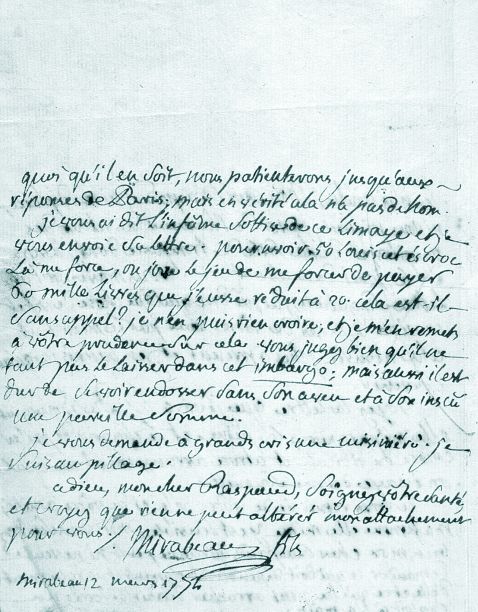 quoi qu'il en soit, nous patienterons jusqu'aux
réponses de Paris; mais en vérité cela n'a pas de nom.
je vous ai dit l'infâme sottise de ce Limaye et je
vous envoie sa lettre. pour avoir 50 Louis cet escroc
Là me force, ou joue le jeu de me forcer de payer
60 mille Livres que j'eusse réduit à 20 cela est-il
sans appel? je n'en puis rien croire, et je m'en remets
à vôtre prudence sur cela vous jugez bien qu'il ne
faut pas le laisser dans cet imbargo; mais aussi il est
dur de se voir endosser sans son aveu et à son insçu
une pareille somme.
je vous demande à grands cris une cuisinière. je
suis au pillage.
adieu, mon cher Raspaud, soignés vôtre santé
et croyez que rien ne peut altérer mon attachement
pour vous. Mirabeau fils
Mirabeau 12 mars 1774